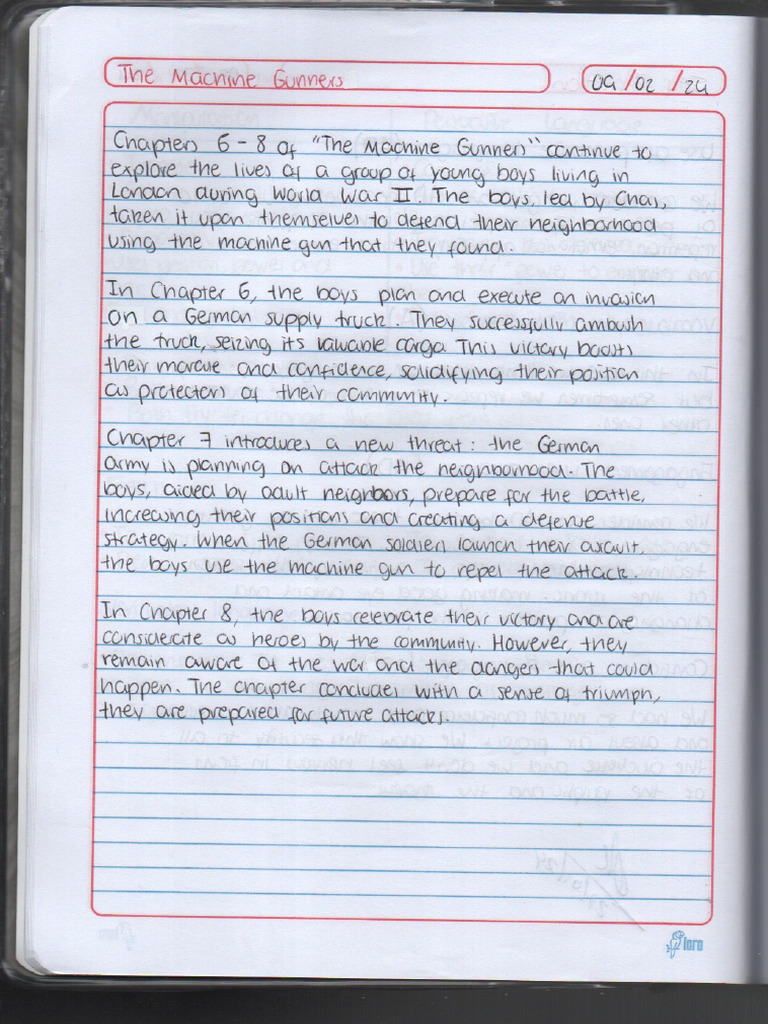 The Machine Gunners
09/02/24
Chapters 6-8 of "The Machine Gunners" continue to
explore the lives of a group of young boys living in
London during World War II. The boys, led by Chas,
taken it upon themselves to defend their neighborhood
using the machine gun that they found.
In Chapter 6, the boys plan and execute an invasion
on a German supply truck. They successfully ambush
the truck, seizing its valuable cargo. This victory boosts
their morale and confidence, solidifying their position
as protectors of their community.
Chapter 7 introduces a new threat: the German
army is planning an attack the neighborhood. The
boys, aided by adult neighbors, prepare for the battle,
increasing their positions and creating a defense
strategy. When the German soldiers launch their assault,
the boys use the machine gun to repel the attack.
In Chapter 8, the boys celebrate their victory and are
considerate as heroes by the community. However, they
remain aware of the war and the dangers that could
happen. The chapter concludes with a sense of triumph,
they are prepared for future attacks.
loro